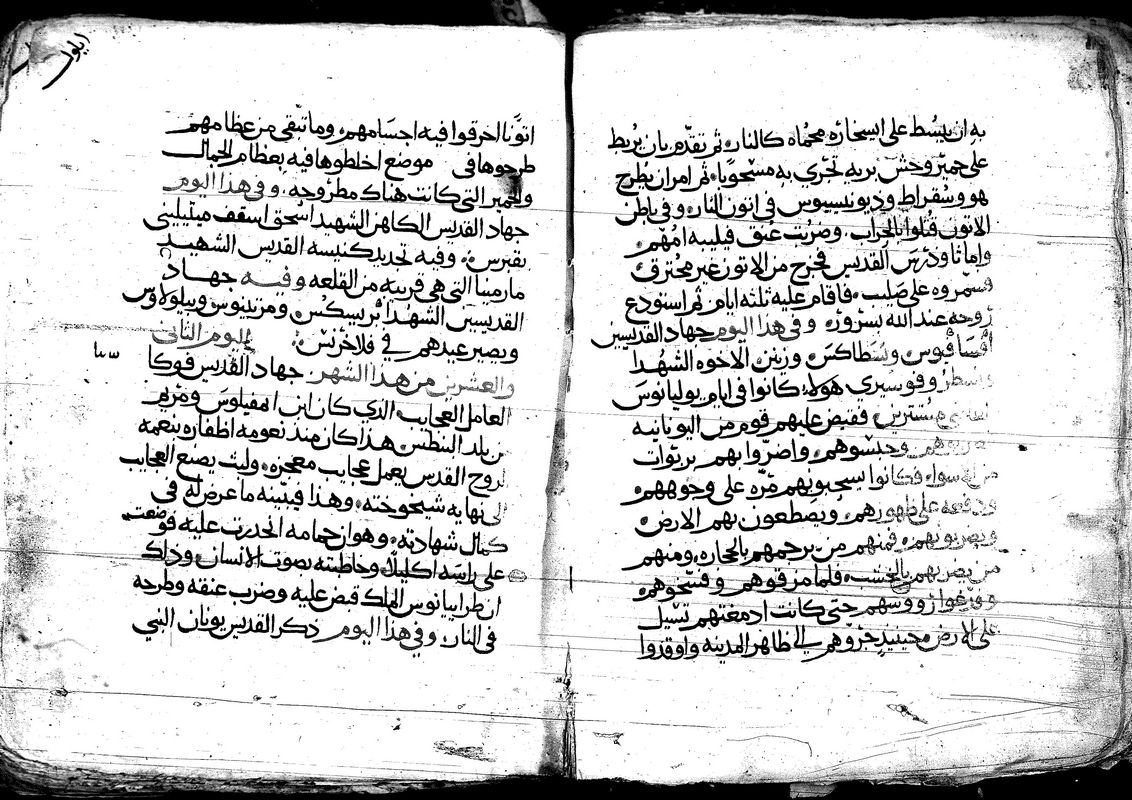 به ان يبسط على اسخاره محماه كالنار، ثم تقدم بان يربط
على حمير وحش بريه تجري به مسحوبا، ثم امر ان يطرح
هو وسقراط وديونيسيوس في اتون النار، وفي باطن
الاتون قتلوا بالحراب، وضربت عنق فيلبيه امهم
واما ثاودرس القديس فخرج من الاتون غير محترق
وسمروه على صليب، فاقام عليه ثلثه ايام ثم استودع
روحه عند الله بسروره، وفي هذا اليوم جهاد القديسين
وسطاكس وزينن الاخوه الشهدا
هولا كانوا في ايام يوليانوس
فقبض عليهم قوم من اليونانيه
وحبسوهم، واضروا بهم بربوات
من اسوا، فكانوا يسحبونهم مره على وجوههم
ودفعه على ظهورهم، ويصطعون بهم الارض
ويضربونهم، فمنهم من يرجمهم بالحجاره، ومنهم
من يضربهم بالخشب، فلما مزقوهم وفسخوهم
وفرغوا رووسهم حتى كانت ادمغتهم تسيل
على الارض، حينيذ جروهم الى ظاهر المدينه واوقدوا
ايلول
اتونا احرقوا فيه اجسامهم، وما تبقى من عظامهم
طرحوها في موضع اخلطوها فيه بعظام الجمال
والحمير التي كانت هناك مطروحه، وفي هذا اليوم
جهاد القديس الكاهن الشهيد اسحق اسقف
بقبرس، وفيه تجديد كنيسه القديس الشهيد
مار مينا التي هي قريبه من القلعه وفيه جهاد
القديسين الشهدا
ويصير عيدهم في اليوم الثاني
والعشرين من هذا الشهر جهاد القديس فوكا
العامل العجايب الذي كان ابن بمفيلوس ومريم
من بلد البنطس هذا كان منذ نعومه اظفاره بنعمه
الروح القدس يعمل عجايب معجزه، ولبث يصنع العجايب
الى نهايه شيخوخته، وهذا فيبينه ما عرض له في
كمال شهادته، وهو ان حمامه انحدرت عليه فوضعت
على راسه اكليلا، وخاطبته بصوت الانسان، وذاك
ان طرايانوس الملك قبض عليه وضرب عنقه وطرحه
في النار، وفي هذا اليوم ذكر القديس يونان النبي